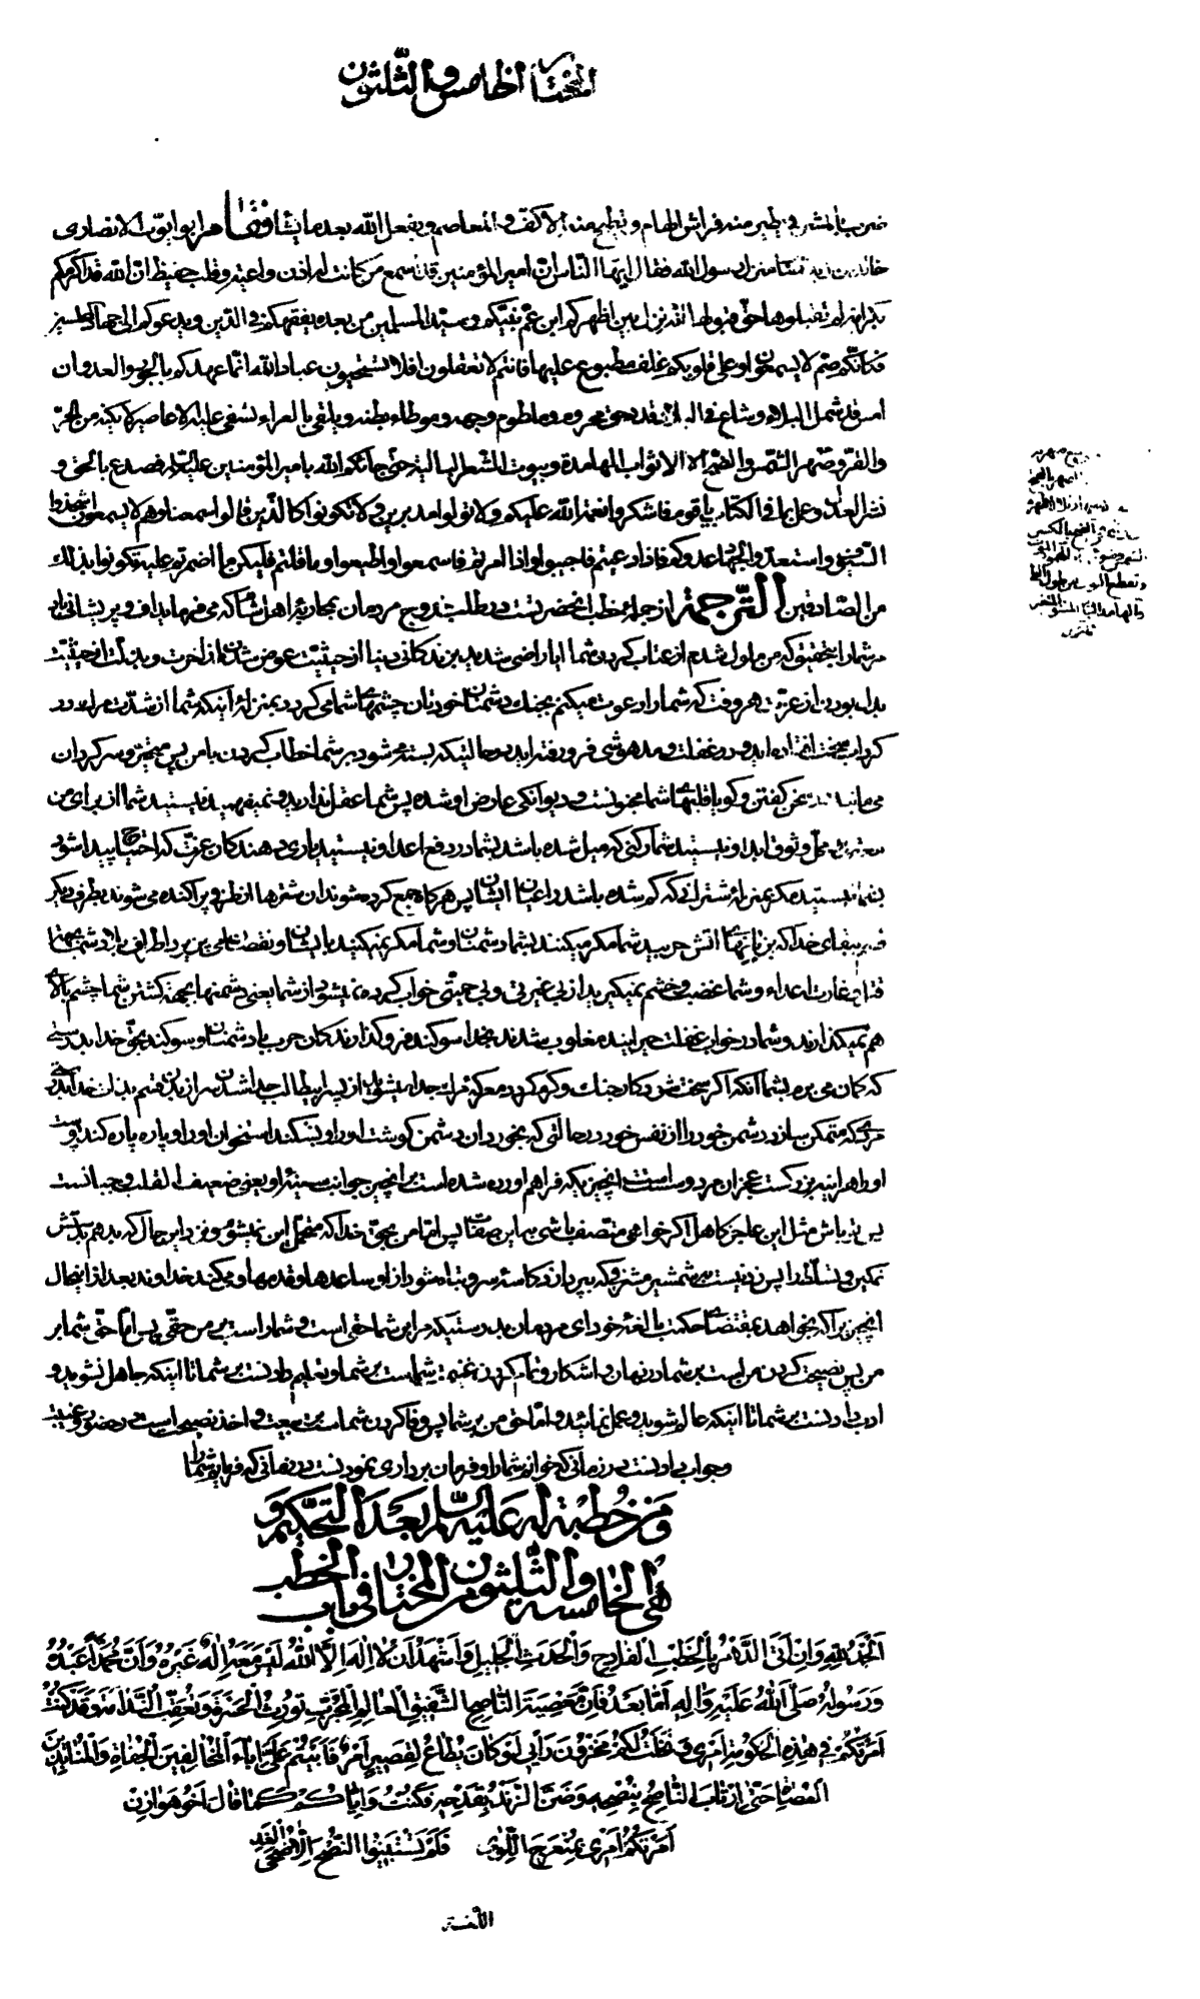 المختار الخامس والثلثون
ضرب بالمشرفى تطير منه فراش الهام وتطيح منه الاكف والمعاصم ويفعل الله بعد ما يشاء فقام ابو ايوب الانصارى
خالد بن زيد صاحب منزل رسول الله فقال ايها الناس ان امير المؤمنين قد اسمع من كانت له اذن واعية وقلب حفيظ ان الله قد اكرمكم
بكرامة لم تقبلوها حق قبولها انه نزل بين اظهركم ابن عم نبيكم وسيد المسلمين من بعده يفقهكم فى الدين ويدعوكم الى جهاد المحلين
فكانكم صم لا يسمعون او على قلوبكم غلف مطبوع عليها فانتم لا تعقلون افلا تستحيون عباد الله انما عهدكم بالجور والعدوان
امس قد شمل البلاء وشاع فى البلاد فذو حق محروم وملطوم وجهه وموطاء بطنه وملقى بالعراء تسفى عليه الاعاصير لا يكنه من الحر
والقر وصهر الشمس والضح الا الاثواب الهامدة وبيوت الشعر البالية حتى جائكم الله بامير المؤمنين عليه السلام فصدع بالحق و
نشر العدل وعمل بما فى الكتاب يا قوم فاشكروا نعمة الله عليكم ولا تولوا مدبرين ولا تكونوا كالذين قالوا سمعنا وهم لا يسمعون اشحذوا
السيوف واستعدوا لجهاد عدوكم فاذا دعيتم فاجيبوا واذا امرتم فاسمعوا واطيعوا وما قلتم فليكن ما اضمرتم عليه تكونوا بذلك
من الصادقين الترجمة از جمله خطب انحضرتست در طلب خروج مردمان بمحاربه اهل شام كه مى فرمايد اف و پريشانى باد
مر شما را بتحقيق كه من ملول شدم از عتاب كردن شما ايا راضى شديد بزندكانى دنيا از حيثيت عوض شدن از اخرت و بذلت از حيثيت
بدل بودن از عزت هر وقت كه شما را دعوت ميكنم بجنك دشمنان خودتان چشمهاى شما مى كردد بمنزله اينكه شما از شدت مرك در
كرداب سختى افتاده ايد و در غفلت و مدهوشى فرو رفته ايد در حالتيكه بسته مى شود بر شما خطاب كردن با من پس متحير و سر كردان
مى مانيد در سخن كفتن و كويا قلبهاى شما مجنونست و ديوانكى عارض او شده پس شما عقل نداريد و نمى فهميد نيستيد شما از براى من
معتمد و محل وثوق ابدا و نيستيد شما ركنى كه ميل شده باشد بشما در دفع اعدا و نيستيد يارى دهندكان عزت كه احتياج پيدا شود
بشما نيستيد مكر بمنزله شترانى كه كم شده باشد راعيان ايشان پس هر كاه جمع كرده شوند ان شترها از طرفى پراكنده مى شوند بطرف ديكر
قسم ببقاى خدا كه بد زبانهاى اتش حربيد شما مكر ميكنند بشما دشمنان و شما مكر نميكنيد بايشان و نقصان مى پذيرد اطراف بلاد شما بجهة
قتل و غارت اعداء و شما غضب و خشم نميكيريد از بى غيرتى و بى حميتى خواب كرده نميشود از شما يعنى دشمنها بجهة كشتن شما چشم بالاى
هم نميكذارند و شما در خواب غفلت حيرانيد مغلوب شدند بخدا سوكند فرو كذارندكان حرب با دشمنان و سوكند بحق خدا بدرستى
كه كمان مى برم بشما آنكه اكر سخت شود كار جنك و كرم كردد معركه مرك جدا ميشويد از پسر ابيطالب جدا شدن سر از بدن قسم بذات خدا بدرستى
مردى كه متمكن سازد دشمن خود را از نفس خود در حالتى كه بخورد ان دشمن كوشت او را و بشكند استخوان او را و پاره پاره كند پوست
او را هر اينه بزركست عجز ان مرد و سست است انچيزيكه فراهم اورده شده است بر انچيز جوانب سينه او يعنى ضعيف القلب و جبانست
پس تو باش مثل اين عاجز كاهل اكر خواهى متصف باشى باين صفات پس اما من بحق خدا كه متحمل اين نميشوم و نزد اين حال كه بدهم بدشمن
تمكين و تسلط را پس زدنيست بشمشير مشرفى كه بپرد از او كاسه سر و تباه شود از او ساعدها و قدمها و ميكند خداوند بعد از اينحال
انچيزيرا كه بخواهد بمقتضاى حكمت بالغه خود اى مردمان بدرستيكه مرا بر شما حقى است و شما راست بر من حقى پس اما حق شما بر
من پس نصيحت كردن من است بر شما در نهان و اشكار و تمام كردن غنيمت شماست بر شما و تعليم دادنست بر شما تا اينكه جاهل نشويد و
ادب دادنست بر شما تا اينكه عالم شويد و عمل نمائيد و اما حق من بر شما پس وفا كردن شما است بر بيعت و اخذ نصيحت است در حضور و غيبت
و جواب دادنست در زمانى كه خوانم شما را و فرمان بردارى نمودنست در زمانى كه فرمايم شما را
ومن خطبة له عليه السلام بعد التحكيم و
هى الخامسة والثلثون من المختار فى باب الخطب
اَلْحَمْدُ لِلّهِ وَاِنْ اَتَى الدَّهْرُ بِالْخَطْبِ الْفادِحِ وَالْحَدَثِ الْجَليلِ وَاَشْهَدُ اَنْ لا اِلهَ اِلاَّ اللّهُ لَيْسَ مَعَهُ اِلهٌ غَيْرُهُ وَاَنَّ مُحَمَّداً عَبْدُهُ
وَرَسُولُهُ صَلَّى اللّهُ عَلَيْهِ وَالِهِ اَمّا بَعْدُ فَاِنَّ مَعْصِيَةَ النّاصِحِ الشَّفيقِ الْعالِمِ الْمُجَرِّبِ تُورِثُ الْحَسْرَةَ وَتُعْقِبُ النَّدامَةَ وَقَدْ كُنْتُ
اَمَرْتُكُمْ فى هذِهِ الْحُكُومَةِ اَمْرى وَنَخَلْتُ لَكُمْ مَخْزُونَ رَاْيى لَوْ كانَ يُطاعُ لِقَصيرٍ اَمْرٌ فَاَبَيْتُمْ عَلَىَّ اِباءَ الْمُخالِفينَ الْجُفاةِ وَالْمُنابِذينَ
الْعُصاةِ حَتّى ارْتابَ النّاصِحُ بِنُصْحِهِ وَضَنَّ الزَّنْدُ بِقَدْحِهِ فَكُنْتُ وَاِيّاكُمْ كَما قالَ اَخُو هَوازِنَ
اَمَرْتُكُمُ اَمْرى بِمُنْعَرَجِ اللِّوى فَلَمْ تَسْتَبينُوا النُّصْحَ اِلاّ ضُحَى الْغَدِ
اللغة